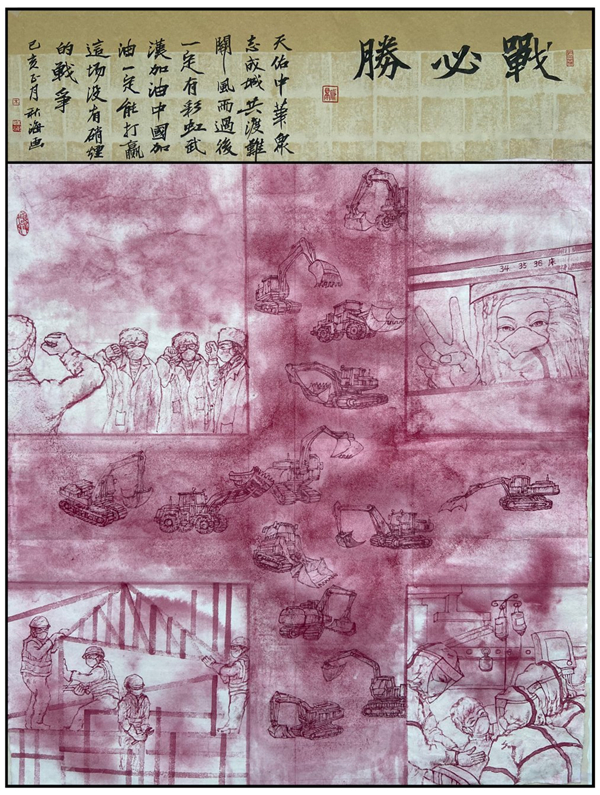 戰必勝
天佑中華衆
志成城共渡難
關風雨過後
一定有彩虹武
漢加油中國加
油一定能打贏
這場没有硝煙
的戰爭
己亥正月 秋海画
34 35 36 床